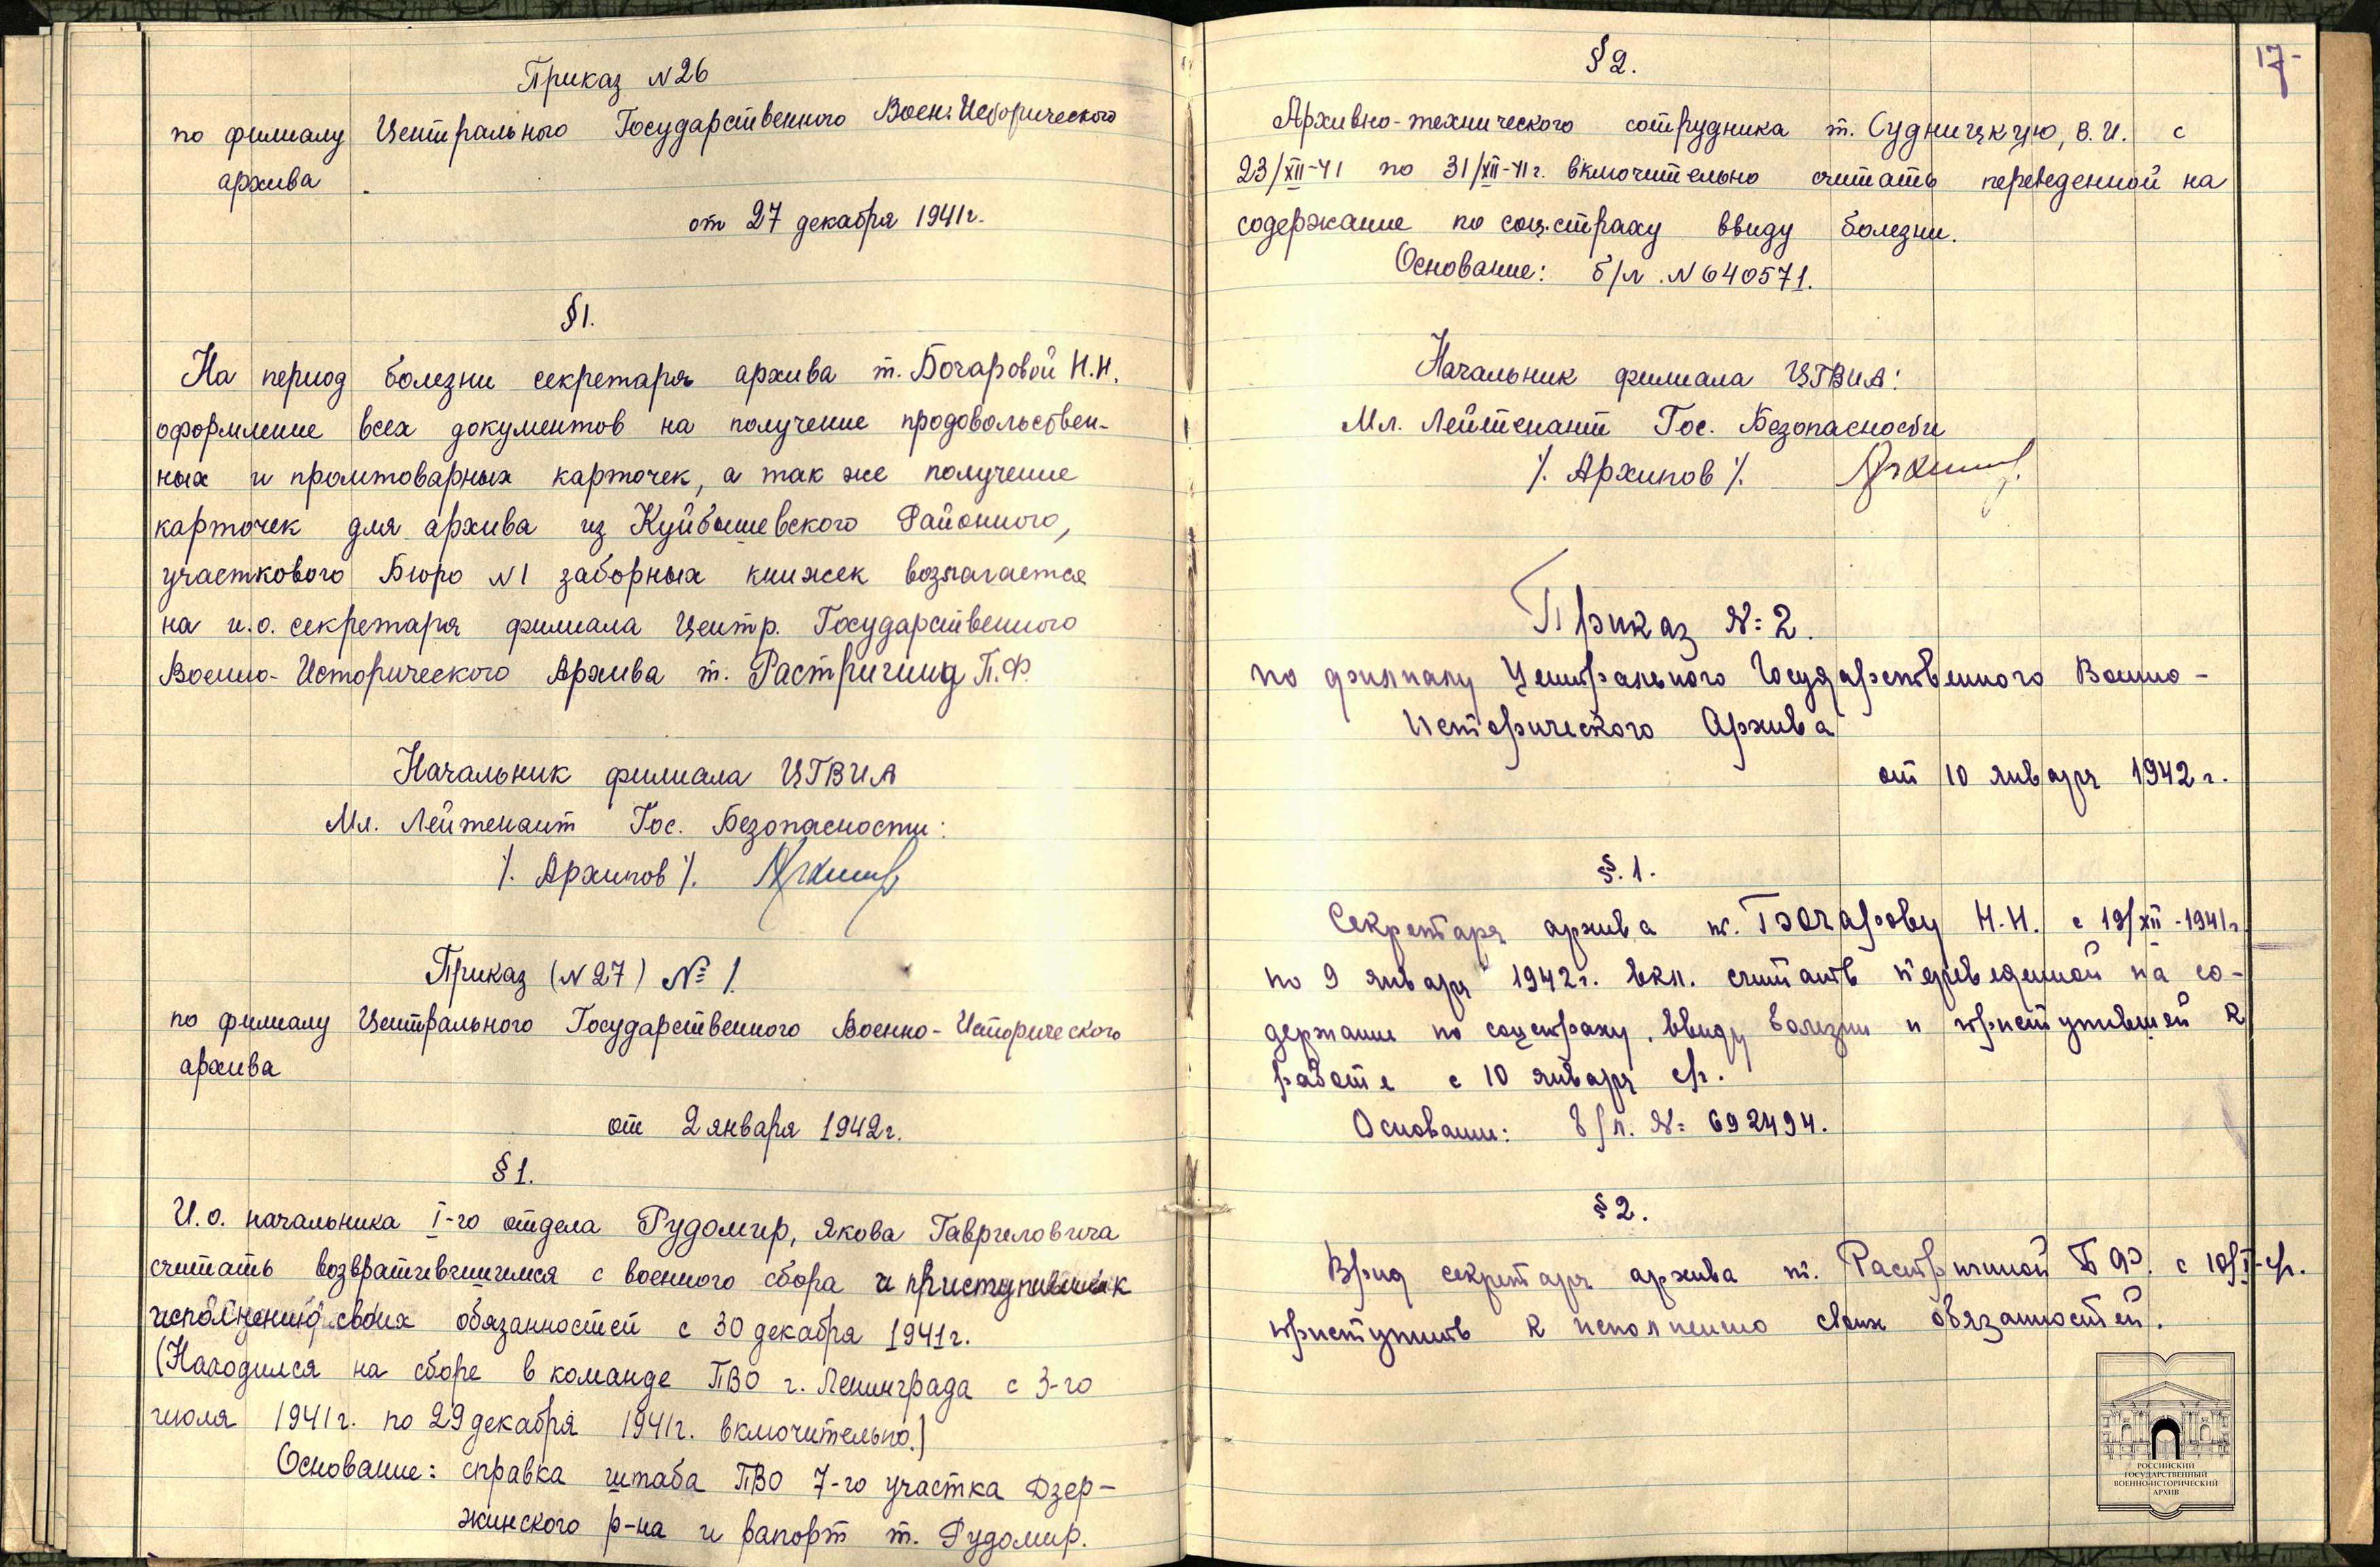 Приказ N 26
по филиалу Центрального Государственного Воен: Исторического
архива.
от 27 декабря 1941г.
§1.
На период болезни секретаря архива т. Бочаровой Н.Н.
оформление всех документов на получение продовольствен-
ных и промтоварных карточек, а так же получение
карточек для архива из Куйбышевского Районного,
участкового Бюро N1 заборных книжек возлагается
на и.о. секретаря филиала Центр. Государственного
Военно-Исторического Архива т. Растригину П.Ф.
Начальник филиала ЦГВИА
Мл. Лейтенант Гос. Безопасности:
/. Архипов /.
Приказ (N 27) № 1.
по филиалу Центрального Государственного Военно-Исторического
архива
от 2 января 1942г.
§1.
И.о. начальника I-го отдела Рудомир, Якова Гавриловича
считать возвратившимся с военного сбора и приступившим к
исполнению своих обязанностей с 30 декабря 1941г.
(Находился на сборе в команде ПВО г. Ленинграда с 3-го
июля 1941г. по 29 декабря 1941г. включительно.)
Основание: справка штаба ПВО 7-го участка Дзер-
жинского р-на и рапорт т. Рудомир.
17-
§2.
Архивно-технического сотрудника т. Судницкую, В.И. с
23/XII-41 по 31/XII-41г. включительно считать переведенной на
содержание по соц.страху ввиду болезни.
Основание: б/л. N 640571.
Начальник филиала ЦГВИА:
Мл. Лейтенант Гос. Безопасности
/. Архипов /.
Приказ №2.
по филиалу Центрального Государственного Военно-
Исторического Архива
от 10 января 1942г.
§.1.
Секретаря архива т. Бочарову Н.Н. с 19/XII-1941г
по 9 января 1942г. вкл. считать переведенной на со-
держание по соцстраху, ввиду болезни и приступившей к
работе с 10 января с/г.
Основание: б/л. № 692494.
§2.
Врид секретаря архива т. Растригиной П.Ф. с 10/I-с/г.
приступить к исполнению своих обязанностей.
РОССИЙСКИЙ
ГОСУДАРСТВЕННЫЙ
ВОЕННО-ИСТОРИЧЕСКИЙ
АРХИВ